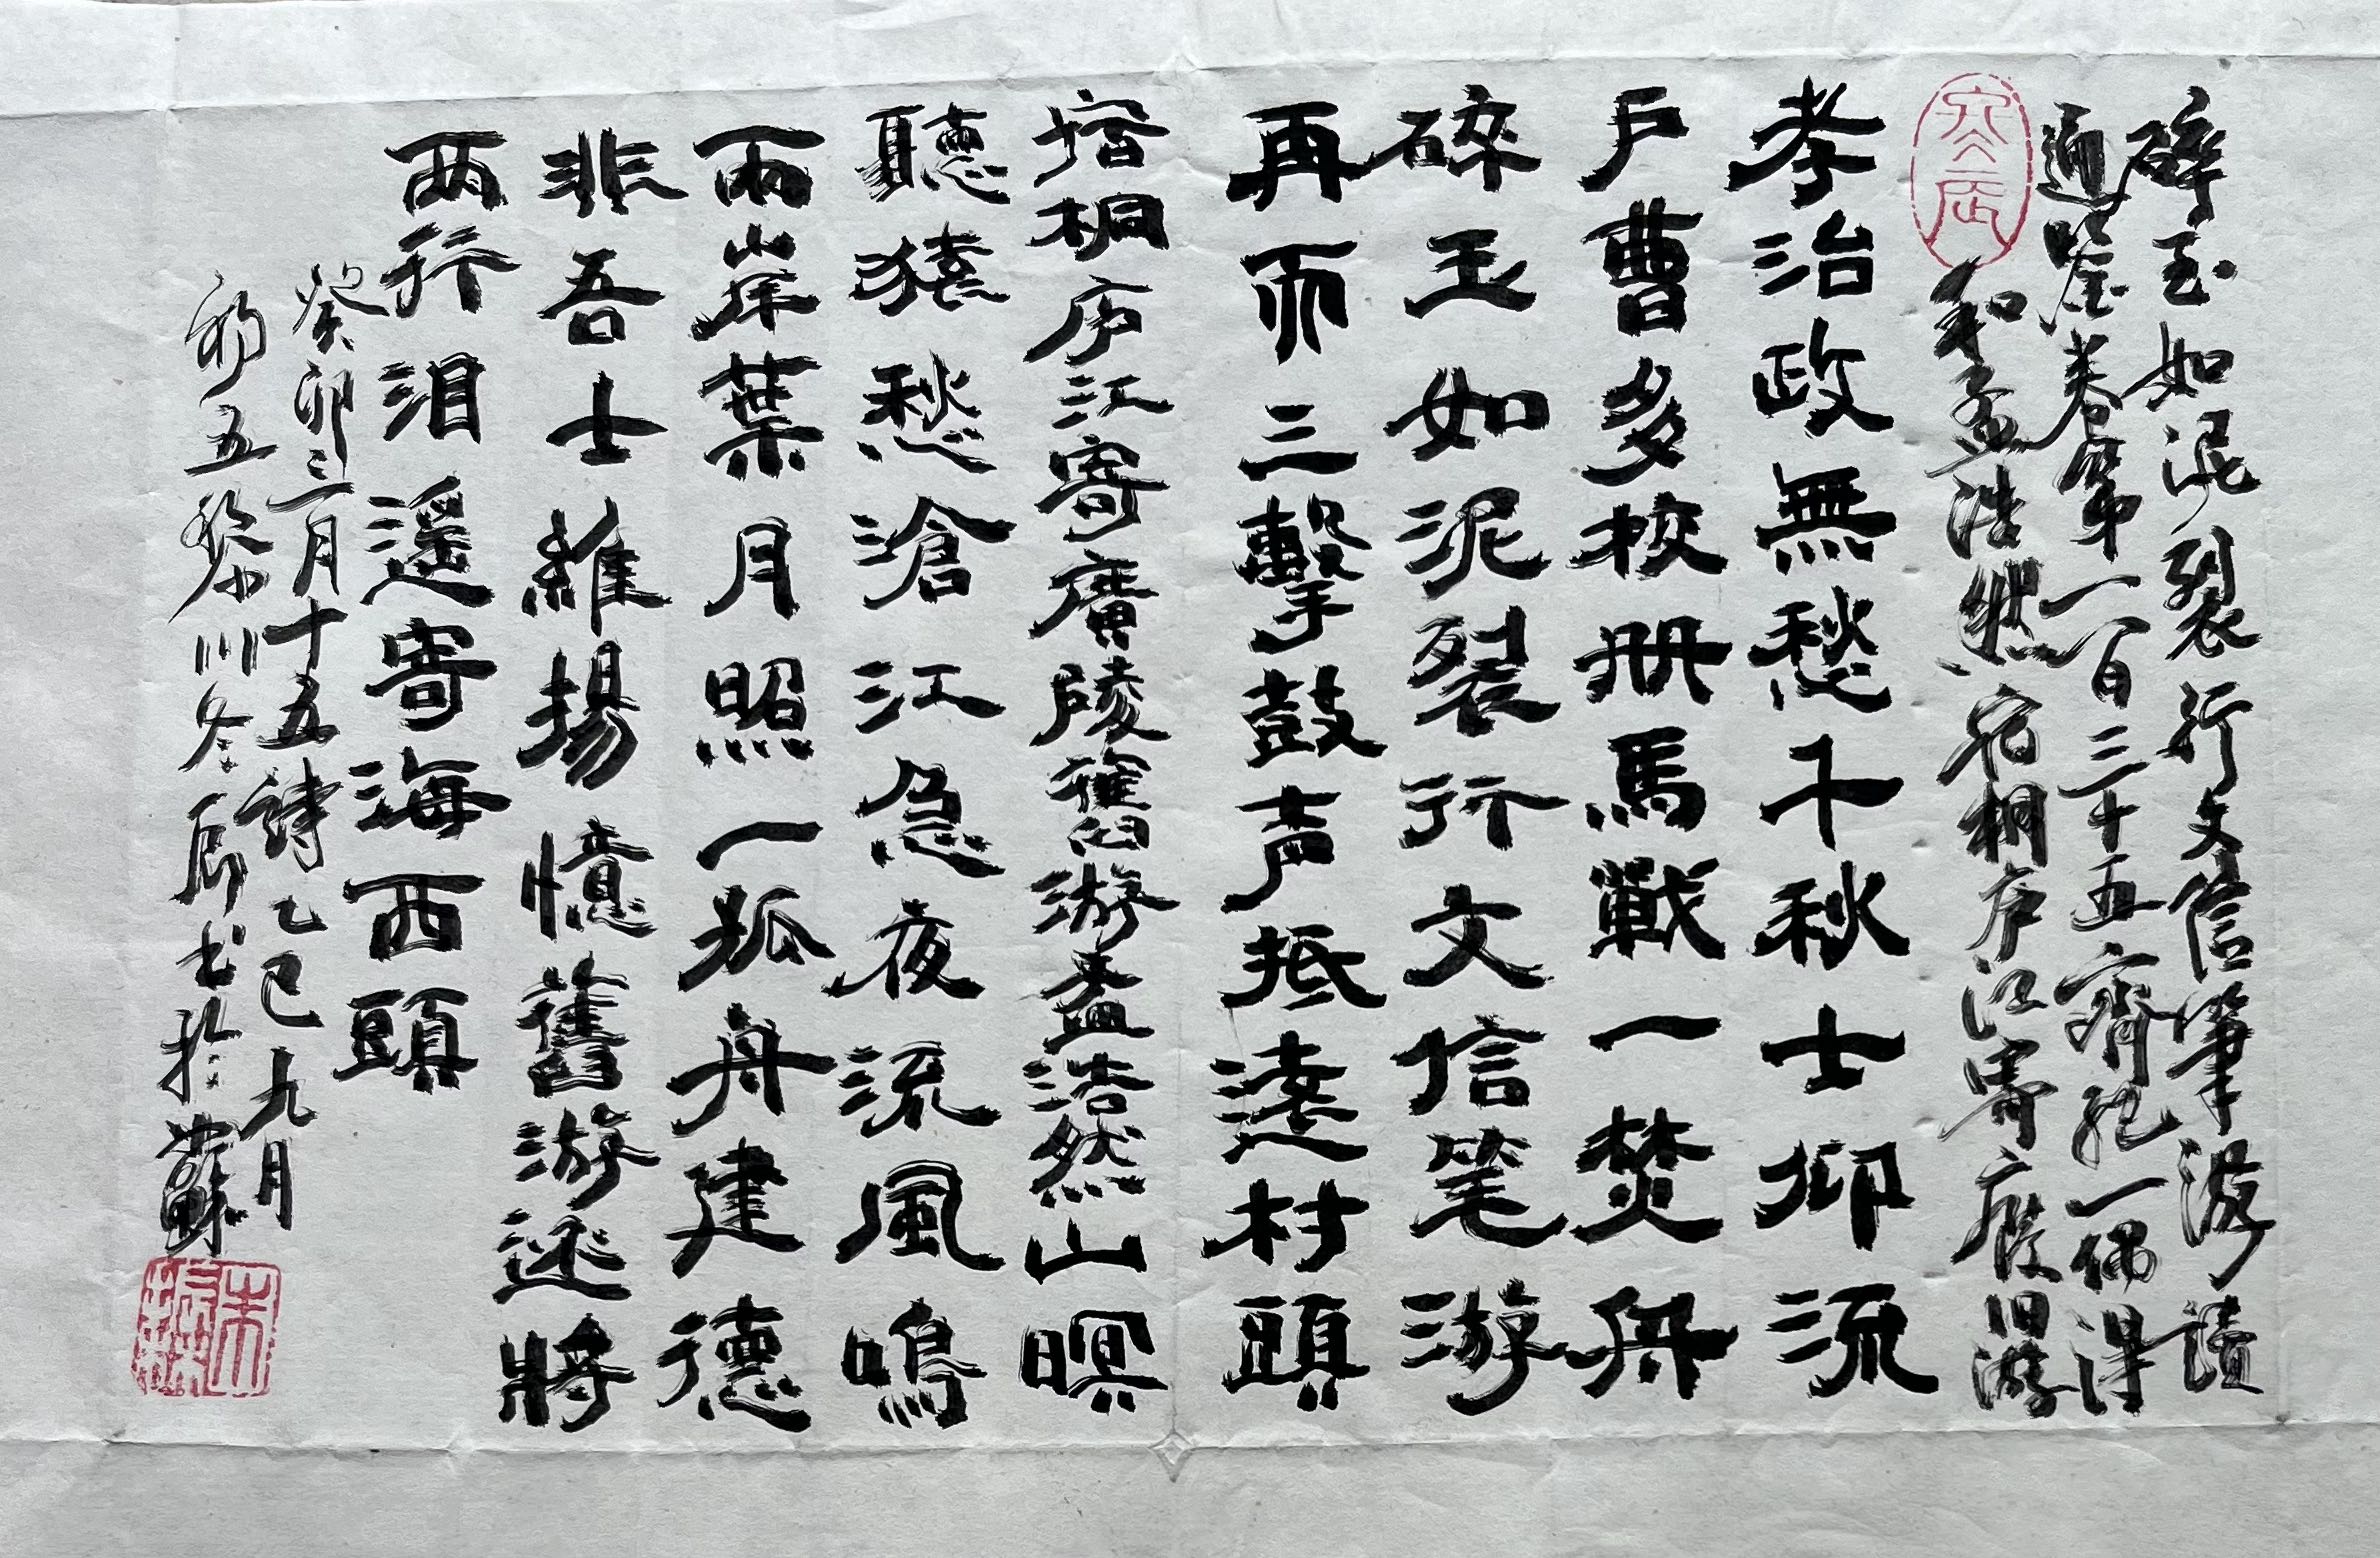 碎玉如泥裂行文信筆游讀
通鑒卷第一百三十五齊紀一偶得
和孟浩然宿桐庐江寄广陵旧游
孝治政無愁千秋士仰流
户曹多校册馬戰一焚舟
碎玉如泥裂行文信笔游
再而三擊鼓声抵遠村頭
宿桐庐江寄廣陵舊游孟浩然山暝
聽猿愁滄江急夜流風鳴
兩岸葉月照一孤舟建德
非吾士維揚憶舊游还將
两行泪遥寄海西頭
癸卯三月十五詩乙巳九月
初五 川冬 书於蘇